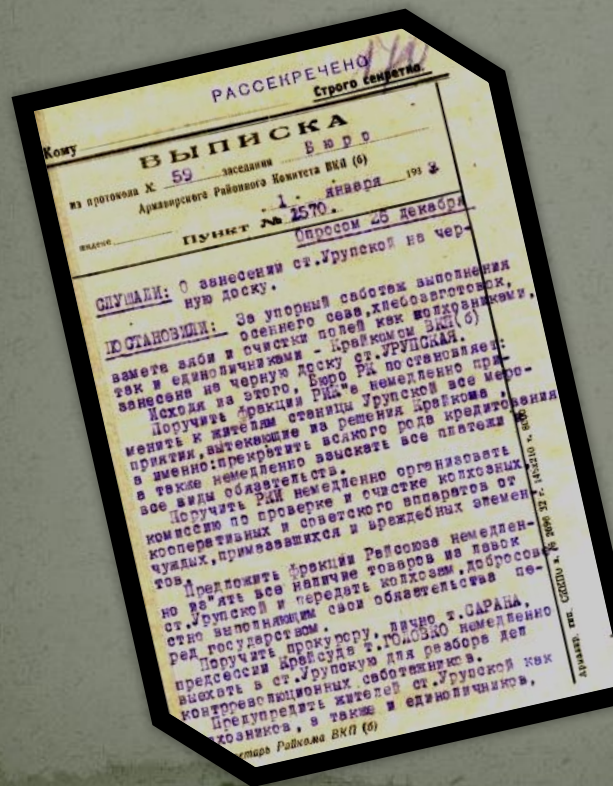 РАССЕКРЕЧЕНО
Строго секретно.
Кому
ВЫПИСКА
из протокола № 59 заседания Бюро
Армавирского Районного Комитета ВКП (б)
1 января 1933
индекс ПУНКТ № 2570.
Опросом 28 декабря
СЛУШАЛИ: О занесении ст.Урупской на чер-
ную доску.
ПОСТАНОВИЛИ: За упорный саботаж выполнения
осеннего сева,хлебозаготовок,
взмета зяби и очистки полей как колхозниками,
так и единоличниками - Крайкомом ВКП(б)
занесена на черную доску ст.УРУПСКАЯ.
Исходя из этого, Бюро РК постановляет:
Поручить фракции РИК"а немедленно при-
менить к жителям станицы Урупской все меро-
приятия,вытекающие из решения Крайкома,
а именно:прекратить всякого рода кредитования
а также немедленно взыскать все платежи и
все виды обязательств.
Поручить РКИ немедленно организовать
комиссию по проверке и очистке колхозных,
кооперативных и советского аппаратов от
чуждых,примазавшихся и враждебных элемен-
тов.
Предложить фракции Райсоюза немедлен-
но из"ять все наличие товаров из лавок
ст.Урупской и передать колхозам,добросове-
стно выполняющим свои обязательства пе-
ред государством.
Поручить прокурору, лично т.САРАНА,
предсессии Крайсуда т.ГОЛОВКО немедленно
выехать в ст.Урупскую для разбора дел
контрреволюционных саботажников.
Предупредить жителей ст.Урупской как
хозников, а также и единоличников,
ктарь Райкома ВКП (б)